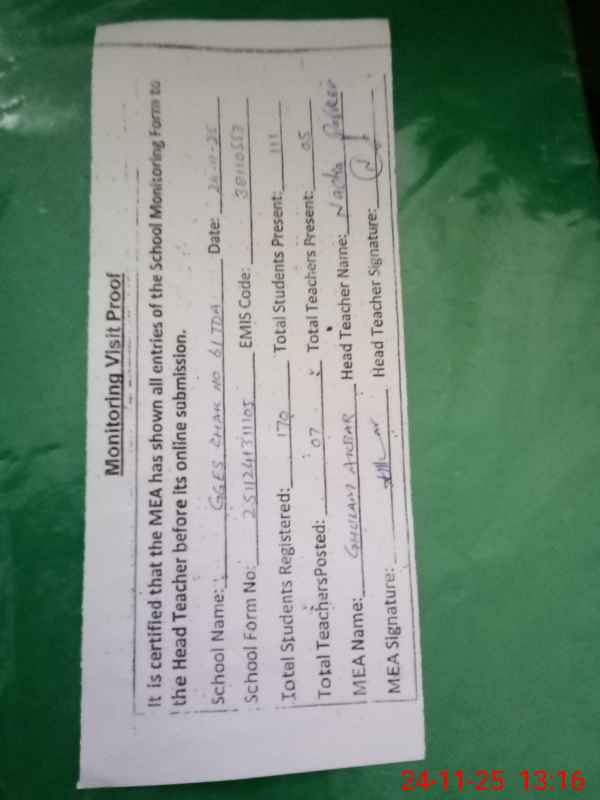 Monitoring Visit Proof
It is certified that the MEA has shown all entries of the School Monitoring Form to
the Head Teacher before its online submission.
School Name: GGES CHAK NO 61 TDA Date: 24-11-25
School Form No: 2511241311105 EMIS Code:
Total Students Registered: 170 Total Students Present: 111
Total TeachersPosted: 07 Total Teachers Present: 05
MEA Name: GHULAM AKBAR Head Teacher Name:
MEA Signature: Head Teacher Signature:
24-11-25 13:16